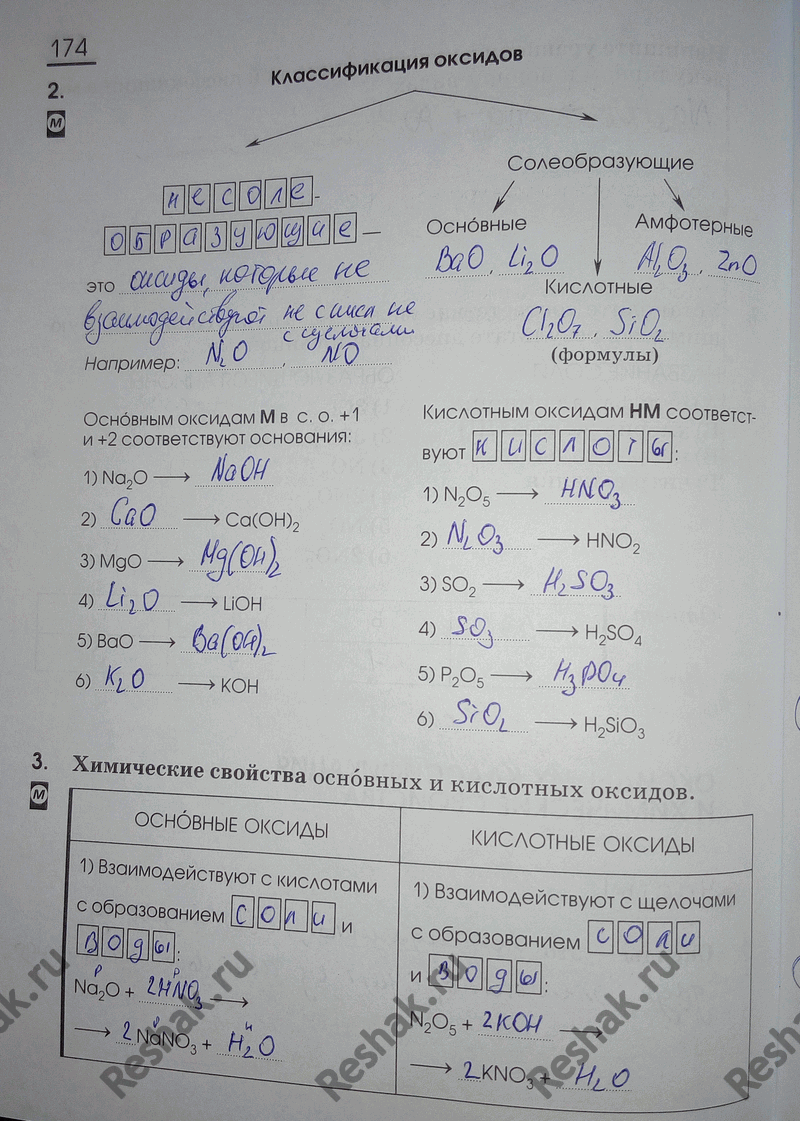 174
2. Классификация оксидов
М
несоле-
образующие —
это оксиды, которые не
взаимодействуют не с кисл не
с щелочами
Например: N₂O, NO
Солеобразующие
Оснóвные
BaO, Li₂O
Амфотерные
Al₂O₃, ZnO
Кислотные
Cl₂O₇, SiO₂
(формулы)
Оснóвным оксидам М в с. о. +1
и +2 соответствуют основания:
1) Na₂O ⟶ NaOH
2) CaO ⟶ Ca(OH)₂
3) MgO ⟶ Mg(OH)₂
4) Li₂O ⟶ LiOH
5) BaO ⟶ Ba(OH)₂
6) K₂O ⟶ KOH
Кислотным оксидам НМ соответст-
вуют кислоты:
1) N₂O₅ ⟶ HNO₃
2) N₂O₃ ⟶ HNO₂
3) SO₂ ⟶ H₂SO₃
4) SO₃ ⟶ H₂SO₄
5) P₂O₅ ⟶ H₃PO₄
6) SiO₂ ⟶ H₂SiO₃
3. Химические свойства оснóвных и кислотных оксидов.
М
ОСНÓВНЫЕ ОКСИДЫ
1) Взаимодействуют с кислотами
с образованием соли и
воды:
р р
Na₂O + 2HNO₃ ⟶
н н
⟶ 2NaNO₃ + H₂O
КИСЛОТНЫЕ ОКСИДЫ
1) Взаимодействуют с щелочами
с образованием соли
и воды:
N₂O₅ + 2KOH ⟶
⟶ 2KNO₃ + H₂O
Reshak.ru
Reshak.ru
Reshak.ru
Reshak.ru